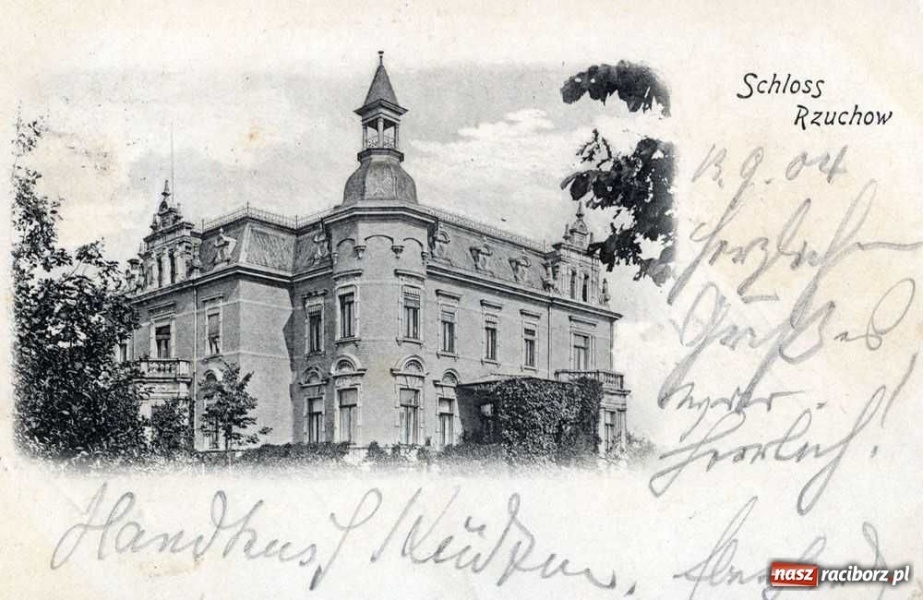 Schloss
Rzuchow
13.9.04
Herzliche
Grüße es
war
herrlich!
Handkuß
nasz raciborz.pl